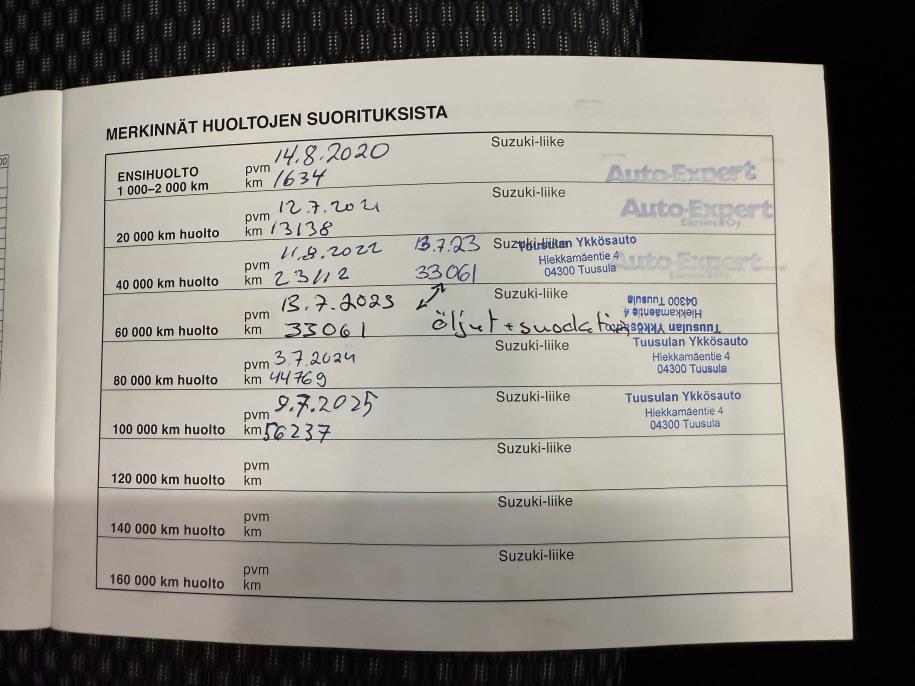 MERKINNÄT HUOLTOJEN SUORITUKSISTA
ENSIHUOLTO
1 000–2 000 km
pvm 14.8.2020
km 1634
Suzuki-liike
Auto-Expert
20 000 km huolto
pvm 12.7.2021
km 13138
Suzuki-liike
Auto-Expert
Ekroos Oy
40 000 km huolto
pvm 11.8.2022
km 23112
13.7.23
33061
Suzuki-liike
Tuusulan Ykkösauto
Hiekkamäentie 4
04300 Tuusula
Auto-Expert
Ekroos Oy
60 000 km huolto
pvm 13.7.2023
km 33061
öljyt + suodatin
Suzuki-liike
Tuusulan Ykkösauto
Hiekkamäentie 4
04300 Tuusula
80 000 km huolto
pvm 3.7.2024
km 44769
Suzuki-liike
Tuusulan Ykkösauto
Hiekkamäentie 4
04300 Tuusula
100 000 km huolto
pvm 9.7.2025
km 56237
Suzuki-liike
Tuusulan Ykkösauto
Hiekkamäentie 4
04300 Tuusula
120 000 km huolto
pvm
km
Suzuki-liike
140 000 km huolto
pvm
km
Suzuki-liike
160 000 km huolto
pvm
km
Suzuki-liike